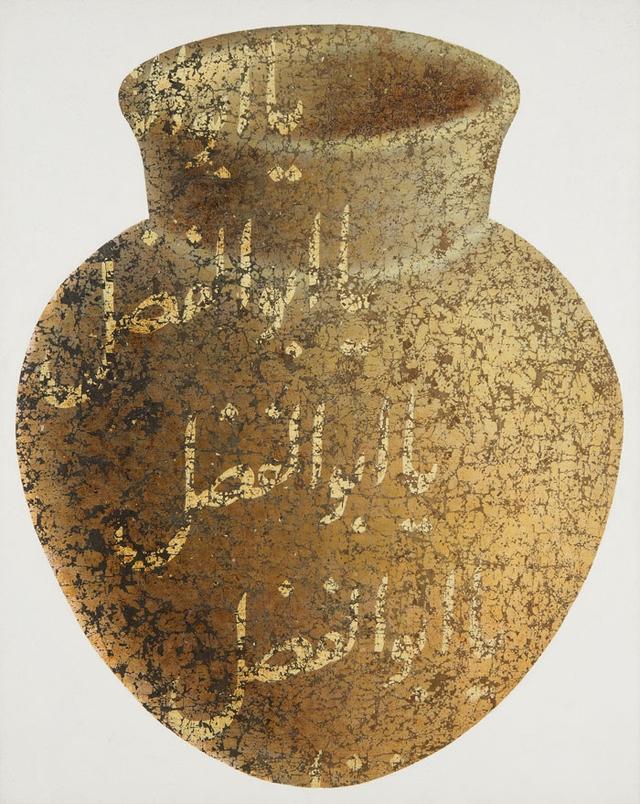 یا
یا ابوالفضل
یا ابوالفضل
یا ابوالفضل